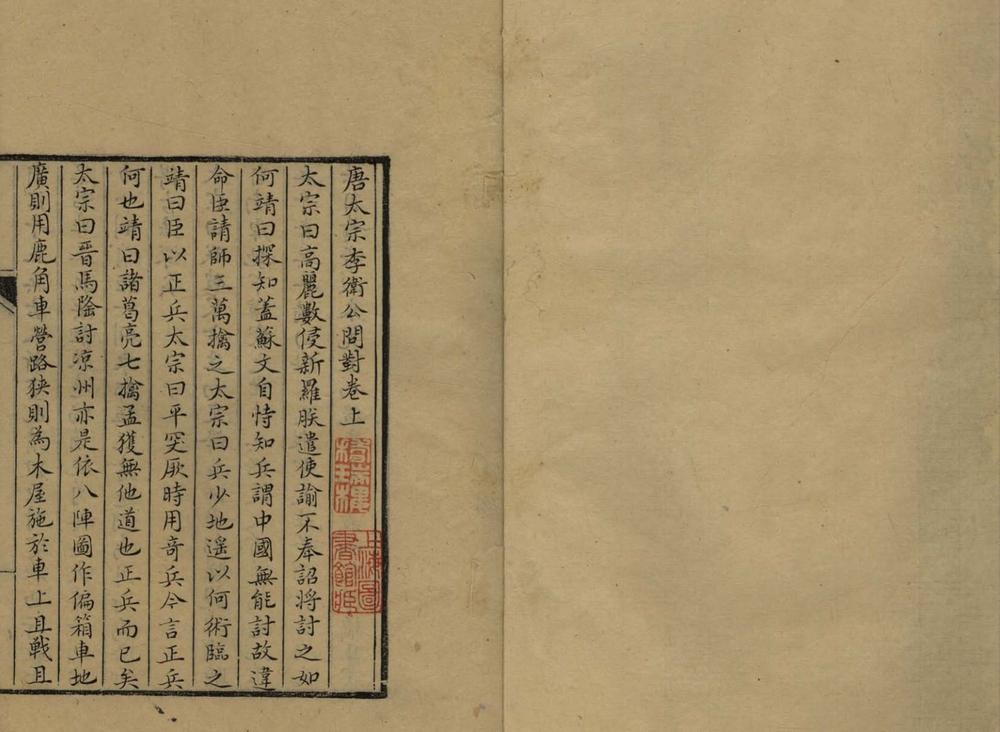 唐太宗李衛公問對卷上
太宗曰高麗數侵新羅朕遣使諭不奉詔將討之如
何靖曰探知蓋蘇文自恃知兵謂中國無能討故違
命臣請師三萬擒之太宗曰兵少地遥以何術臨之
靖曰臣以正兵太宗曰平突厥時用奇兵今言正兵
何也靖曰諸葛亮七擒孟獲無他道也正兵而已矣
太宗曰晋馬隆討涼州亦是依八陣圖作偏箱車地
廣則用鹿角車營路狹則為木屋施於車上且戰且
上海圖書館藏